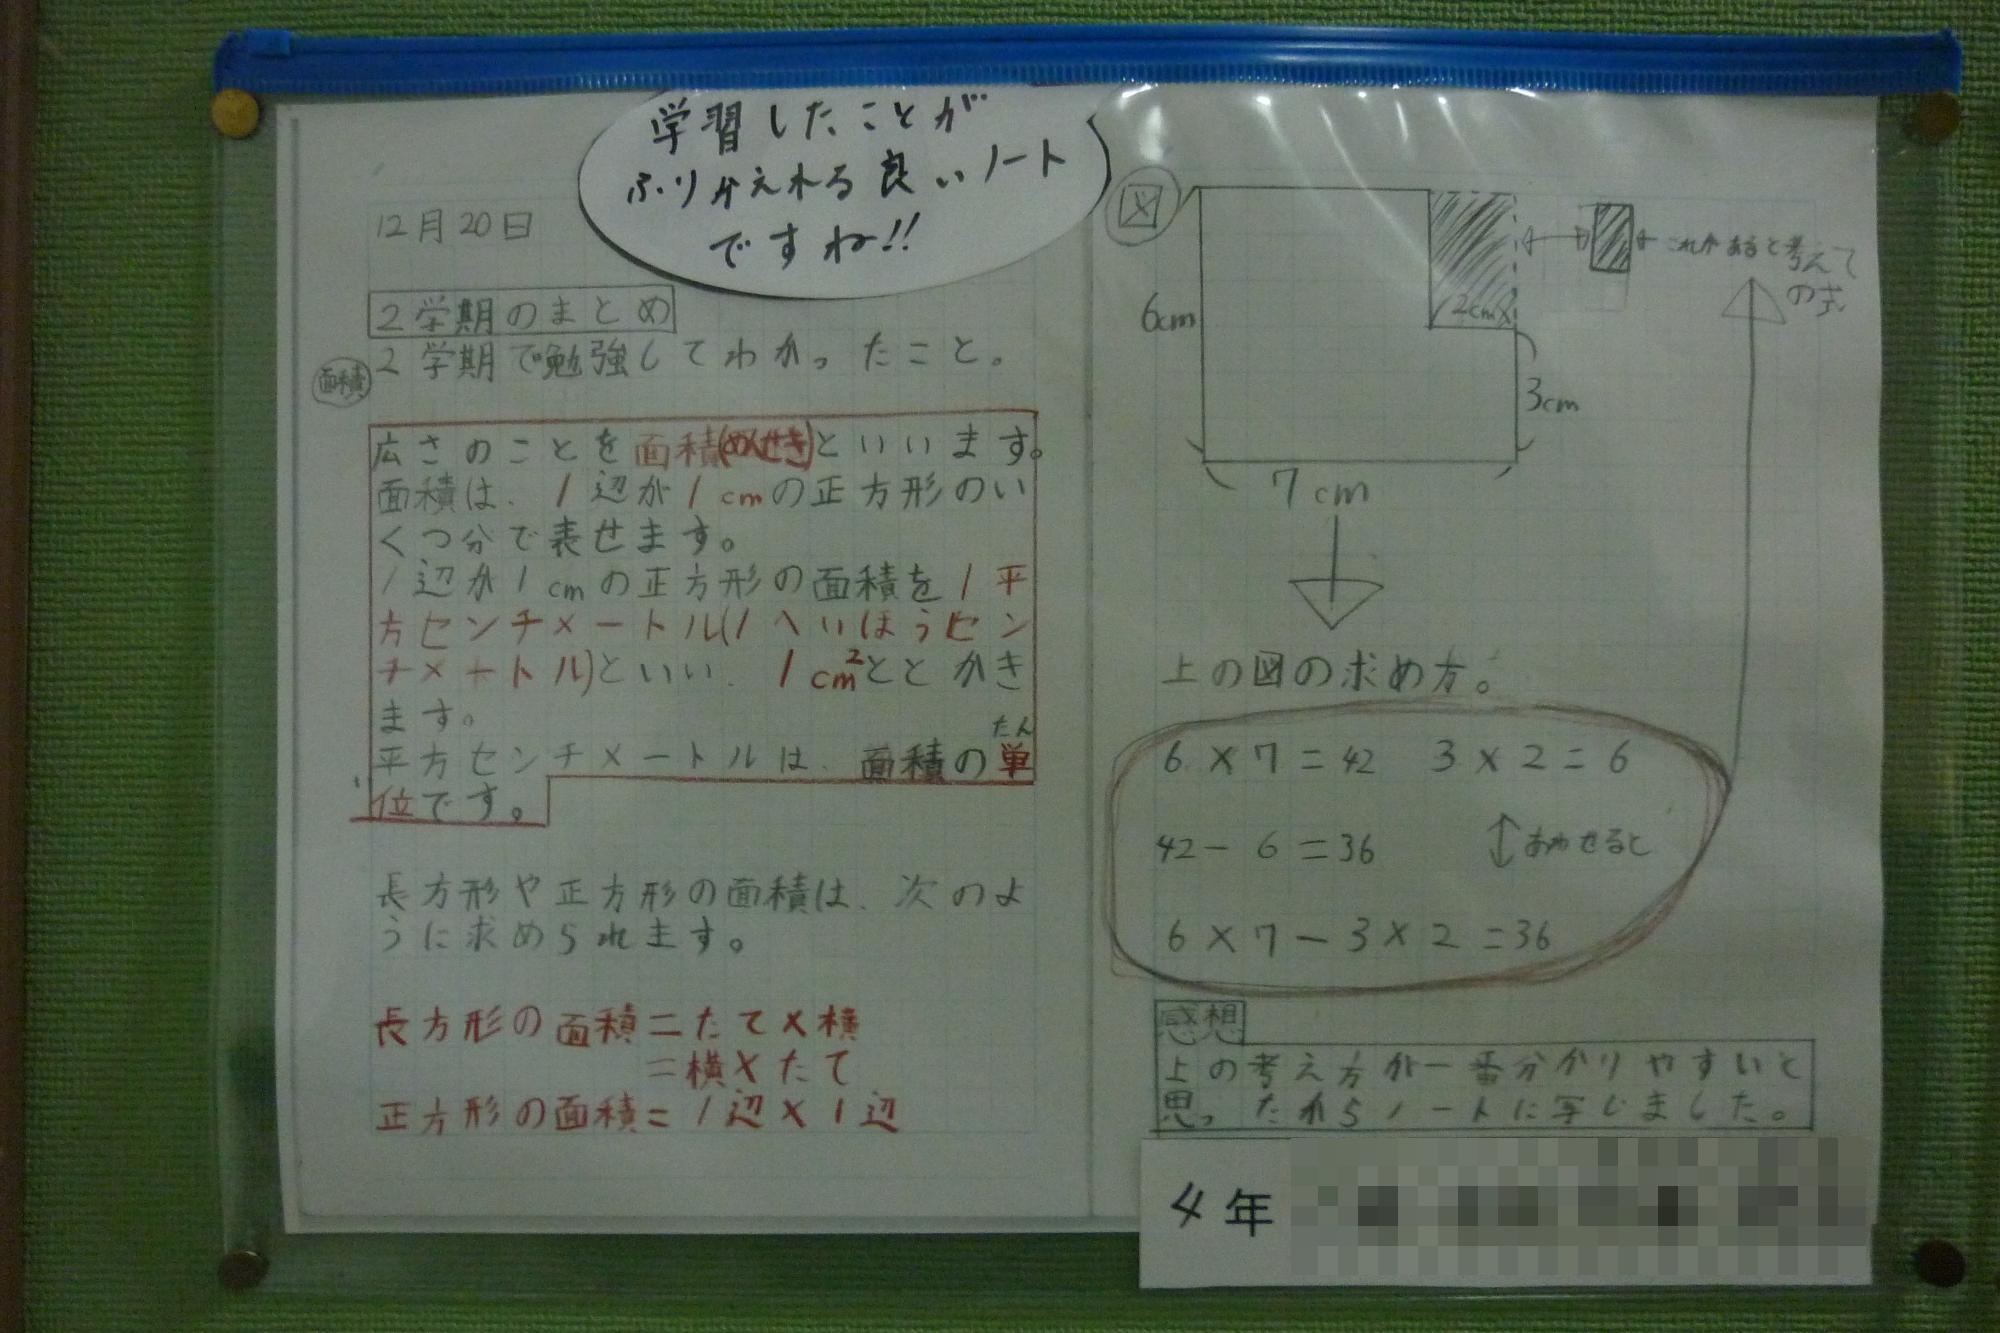 学習したことが
ふりかえれる良いノート
ですね!!
12月20日
2学期のまとめ
2学期で勉強してわかったこと。
面積
広さのことを面積(めんせき)といいます。
面積は、1辺が1cmの正方形のい
くつ分で表せます。
1辺が1cmの正方形の面積を1平
方センチメートル(1へいほうセン
チメートル)といい、1cm²ととかき
ます。
たん
平方センチメートルは、面積の単
い
位です。
長方形や正方形の面積は、次のよ
うに求められます。
長方形の面積=たて×横
=横×たて
正方形の面積=1辺×1辺
図
これがあると考えて
の式
6cm
2cm
3cm
7cm
上の図の求め方。
6×7=42 3×2=6
42-6=36 あわせると
6×7-3×2=36
感想
上の考え方が一番分かりやすいと
思ったからノートに写しました。
4年